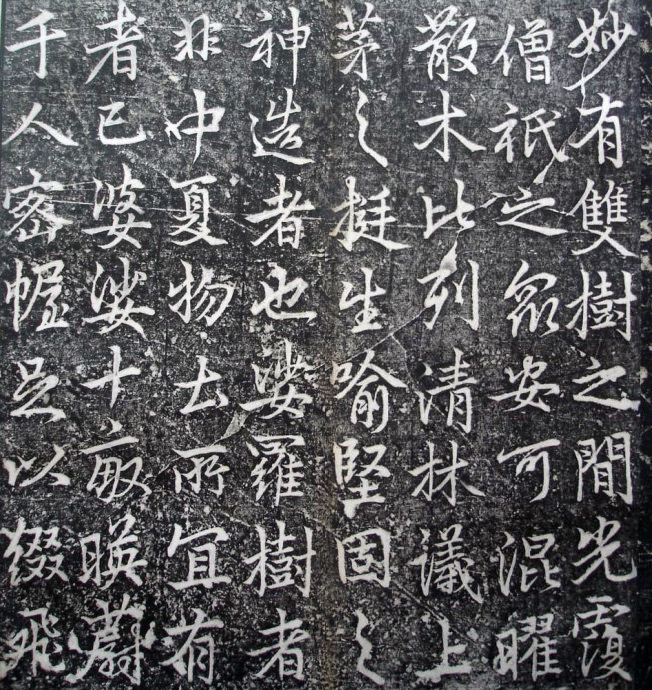 妙有雙樹之閒光覆
僧祇之眾安可混曜
散木比列清林議上
茅之挺生喻堅固之
神造者也娑羅樹者
非中夏物土所宜有
者已婆娑十畝暎蔚
千人密幄足以綴飛